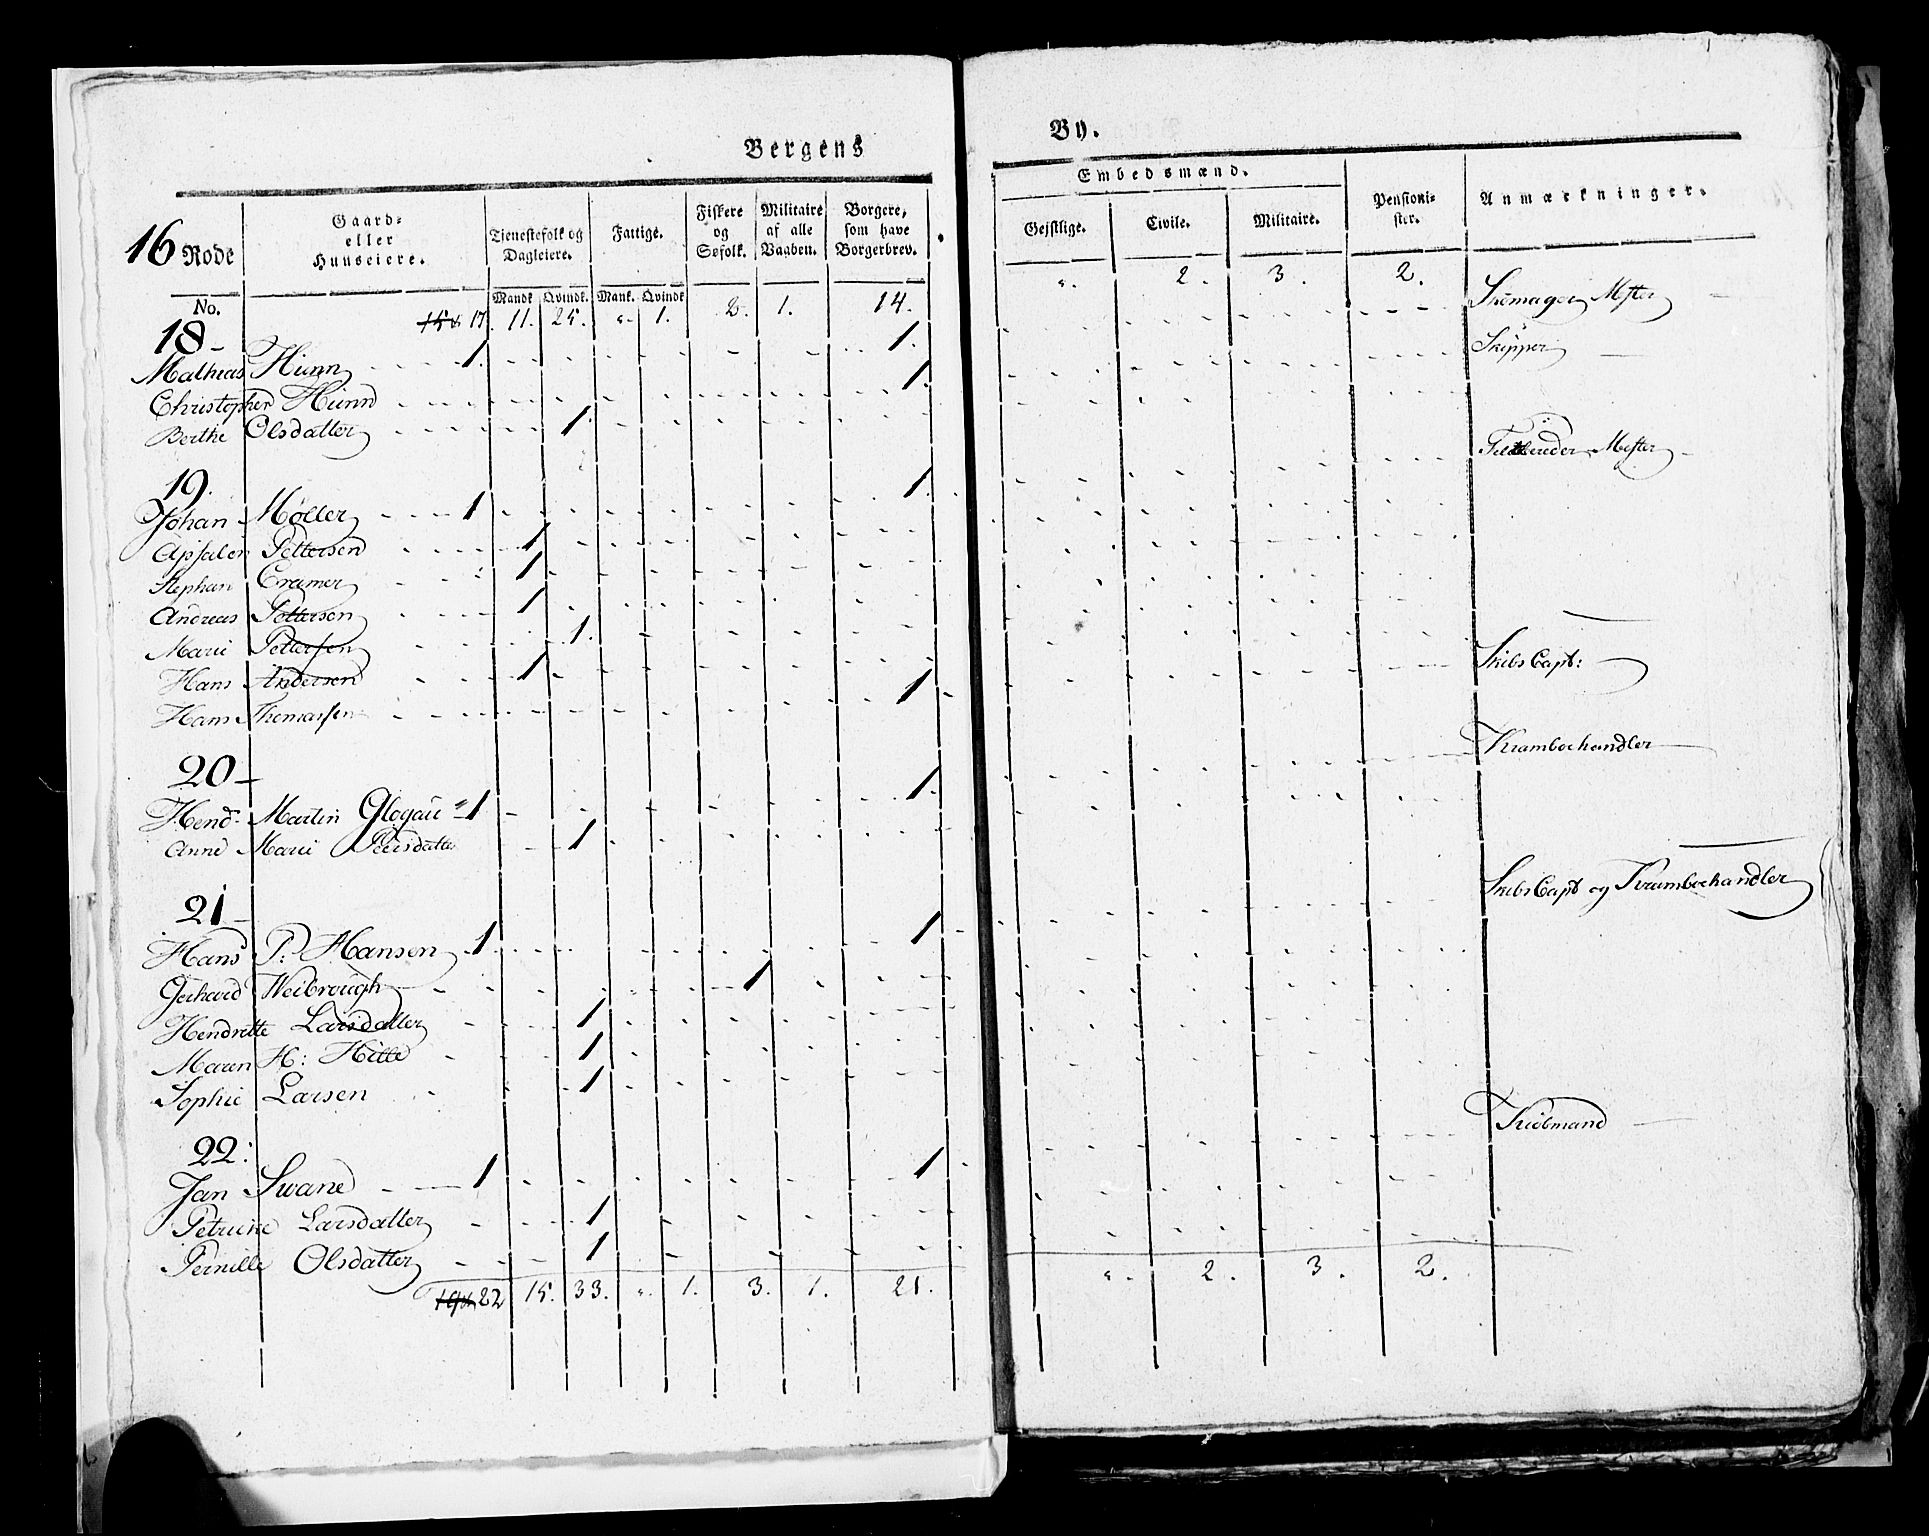 Bergens By.
16 Rode
No.
Gaard- eller Huuseiere.
Tienestefolk og Dagleiere.
Mandk. Qvindk.
Fattige.
Mank. Qvindk.
Fiskere og Søfolk.
Militaire af alle Vaaben.
Borgere, som have Borgerbrev.
Embedsmænd.
Gejstlige. Civile. Militaire.
Pensionister.
Anmærkninger.
17. 11. 25. „ 1. 2. 1. 14. „ 2. 3. 2.
18
Mathias Hünn 1. 1. Skomager Mester
Christopher Hünn 1. Skipper
Berthe Olsdatter 1.
19.
Johan Møller 1 1. Mester
Apsalon Pettersen 1
Stephan Cramer 1
Andreas Pettersen 1
Marie Pettersen 1.
Hans Andersen 1
Hans Thomassen 1 Skibs Capt:
20
Hend. Martin Glogau 1 1. Kramboehandler
Anne Marie Peersdatter 1
21
Hans P: Hansen 1. 1 Skibs Capt og Kramboehandler
Gerhard Weibrough 1
Hendrette Larsdatter 1
Maren H: Hille 1
Sophie Larsen 1
22:
Jan Svane 1 1 Kiøbmand
Petrikke Larsdatter 1
Pernille Olsdatter 1
22 15. 33. „ 1. 3. 1. 21. „ 2. 3. 2.